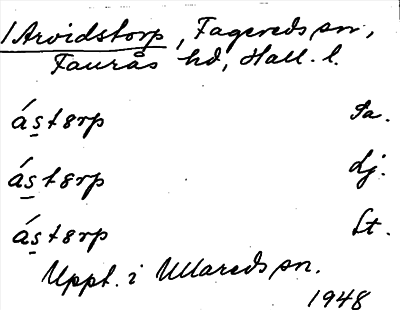 1 Arvidstorp, Fagereds sn,
Faurås hd, Hall. l.
ástorp Sa.
ástorp dj.
ástorp St.
Uppt. i Ullareds sn.
1948